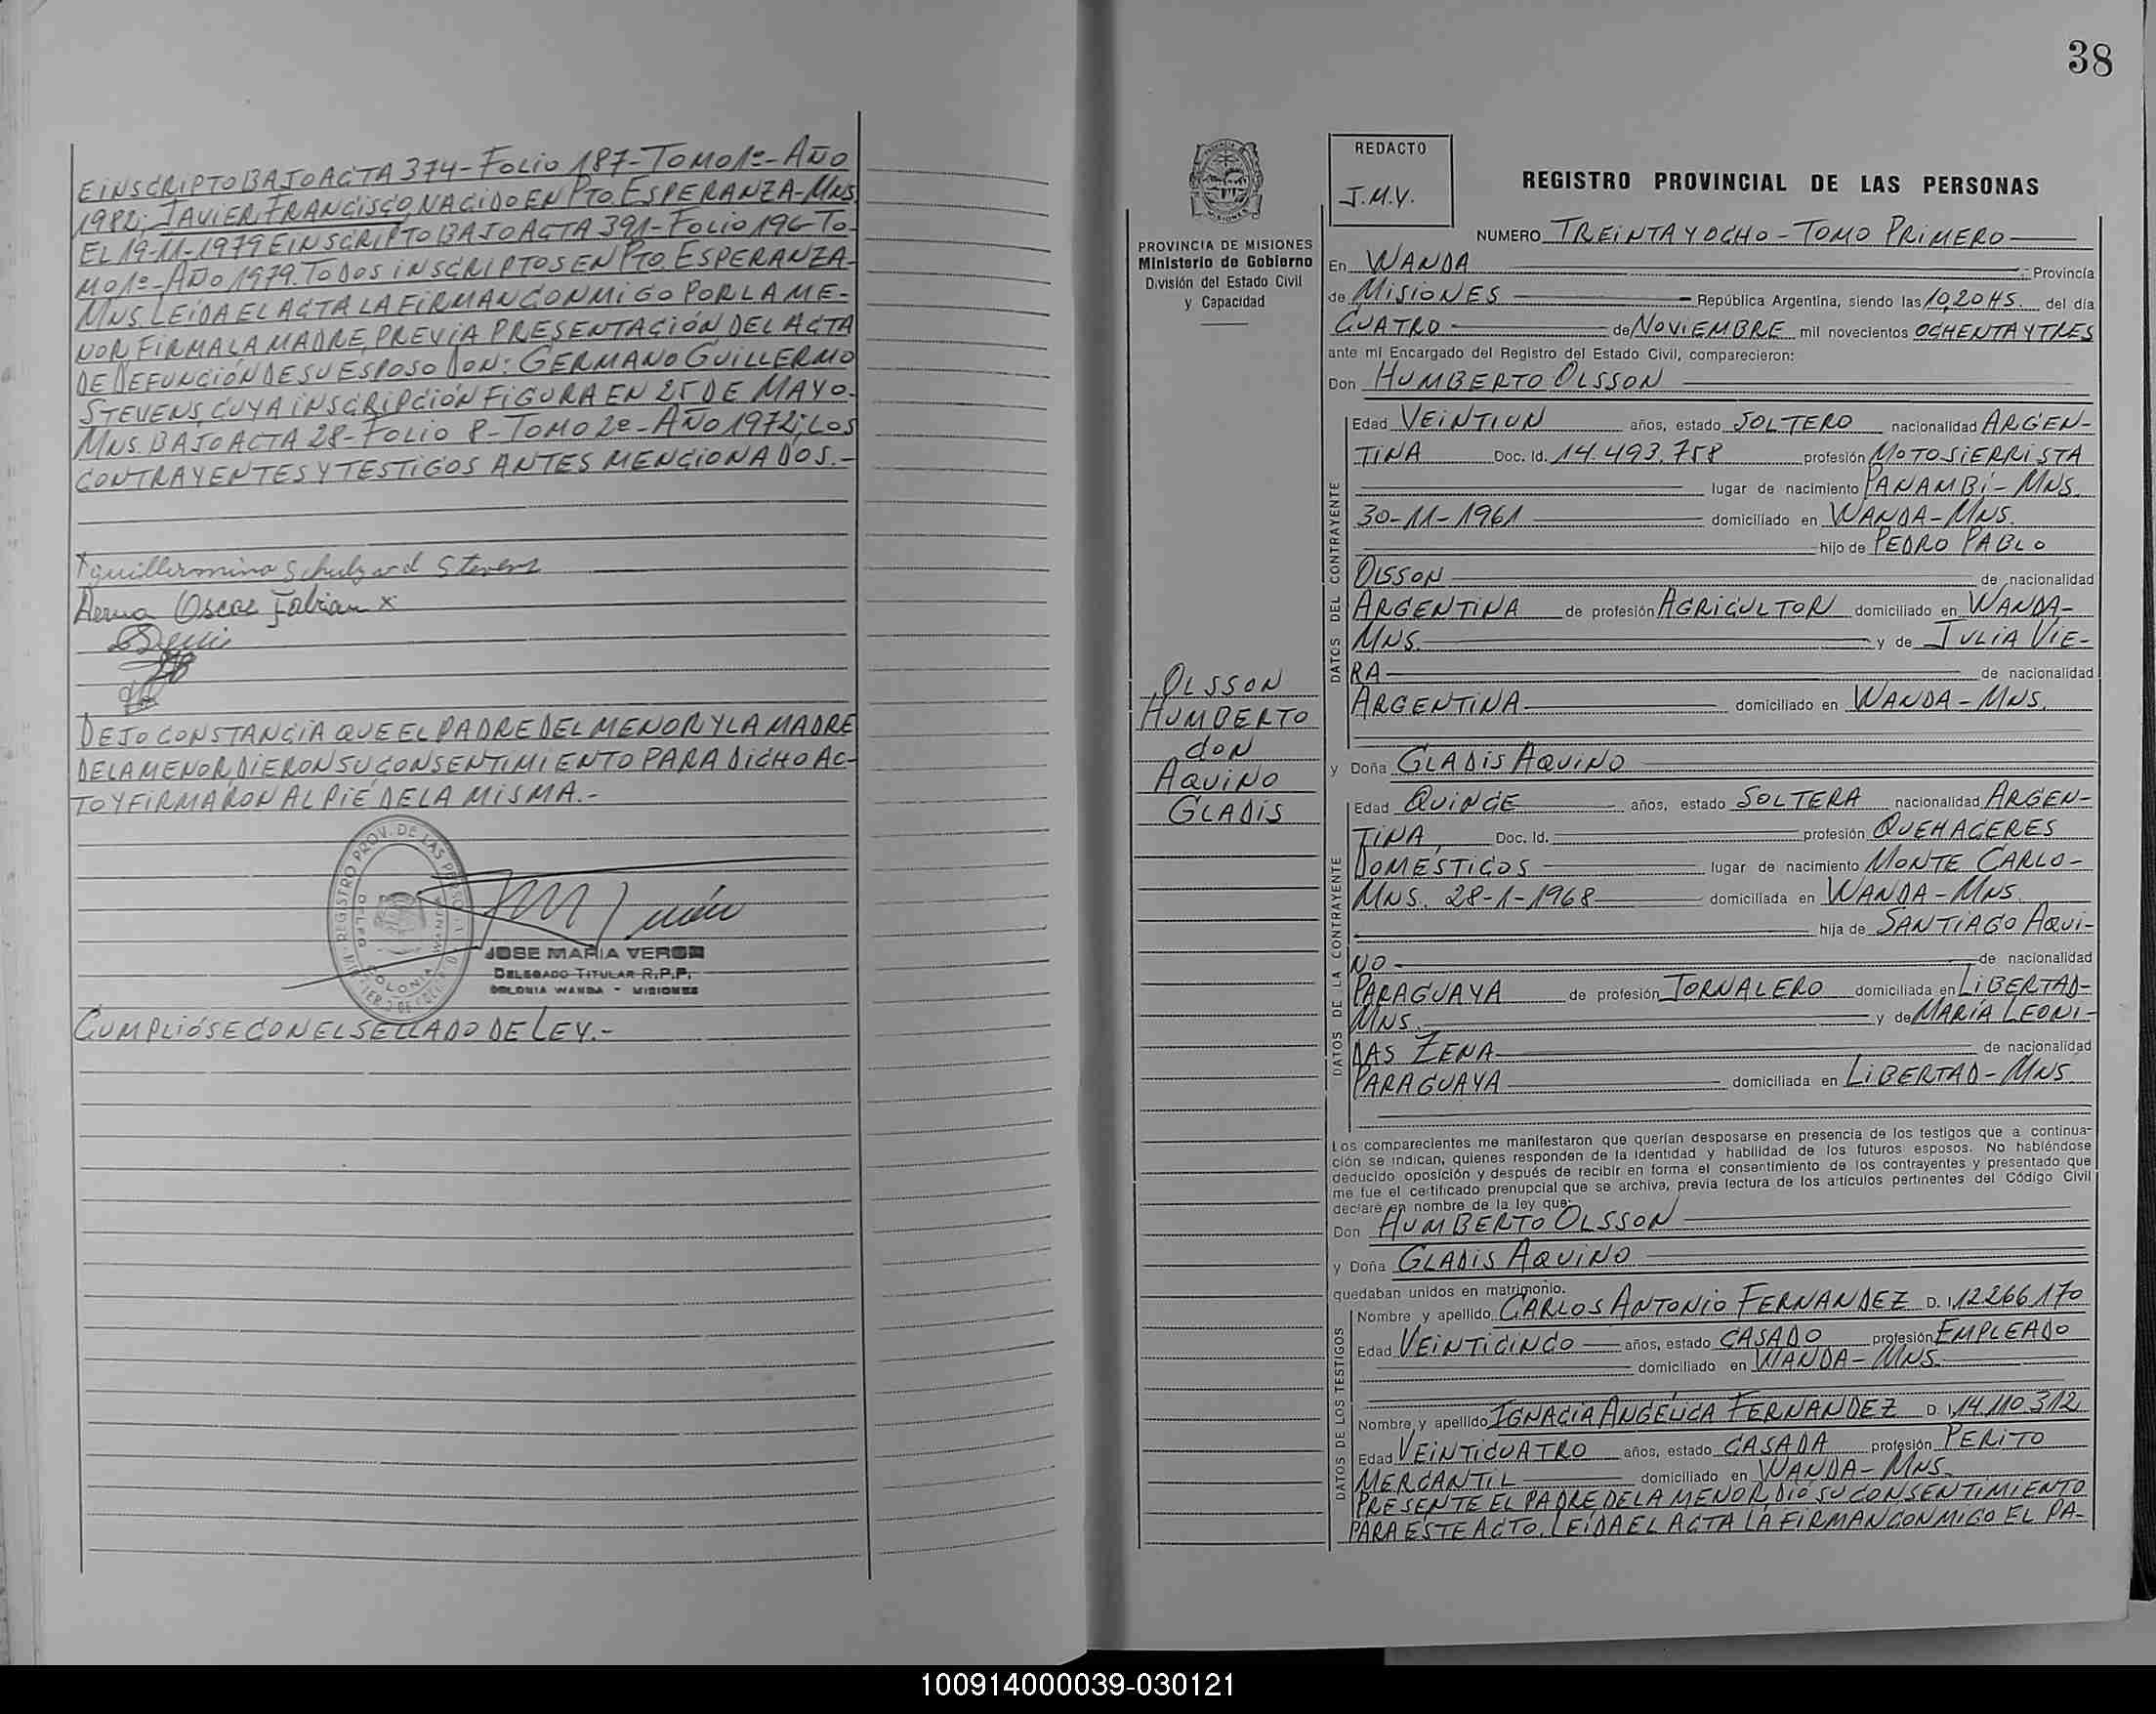 EINSCRIPTO BAJO ACTA 374-FOLIO 187-TOMO 1º-AÑO
1982; JAVIER FRANCISCO, NACIDO EN PTO. ESPERANZA-MNS.
EL 19-11-1979 E INSCRIPTO BAJO ACTA 391-FOLIO 196-TO-
MO 1º-AÑO 1979. TODOS INSCRIPTOS EN PTO. ESPERANZA-
MNS. LEIDA EL ACTA LA FIRMAN CONMIGO POR LA ME-
NOR FIRMA LA MADRE, PREVIA PRESENTACIÓN DEL ACTA
DE DEFUNCIÓN DE SU ESPOSO DON: GERMANO GUILLERMO
STEVENS, CUYA INSCRIPCIÓN FIGURA EN 25 DE MAYO-
MNS. BAJO ACTA 28-FOLIO 8-TOMO 2º-AÑO 1972; LOS
CONTRAYENTES Y TESTIGOS ANTES MENCIONADOS.-
guillermina Schulz vd Stevens
Oscar Fabian x
DEJO CONSTANCIA QUE EL PADRE DEL MENOR Y LA MADRE
DE LA MENOR, DIERON SU CONSENTIMIENTO PARA DICHO AC-
TO Y FIRMARON AL PIÉ DE LA MISMA.-
JOSE MARIA VERON
DELEGADO TITULAR R.P.P.
COLONIA WANDA - MISIONES
CUMPLIÓSE CON EL SELLADO DE LEY.-
38
REDACTO
J.M.V.
REGISTRO PROVINCIAL DE LAS PERSONAS
PROVINCIA DE MISIONES
Ministerio de Gobierno
División del Estado Civil
y Capacidad
OLSSON
HUMBERTO
CON
AQUINO
GLADIS
NUMERO TREINTA Y OCHO - TOMO PRIMERO
En WANDA Provincia
de MISIONES República Argentina, siendo las 10,20 HS. del día
CUATRO de NOVIEMBRE mil novecientos OCHENTA Y TRES
ante mi Encargado del Registro del Estado Civil, comparecieron:
Don HUMBERTO OLSSON
DATOS DEL CONTRAYENTE
Edad VEINTIUN años, estado SOLTERO nacionalidad ARGEN-
TINA Doc. Id. 14.493.758 profesión MOTOSIERRISTA
lugar de nacimiento PANAMBÍ-MNS.
30-11-1961 domiciliado en WANDA-MNS.
hijo de PEDRO PABLO
OLSSON de nacionalidad
ARGENTINA de profesión AGRICULTOR domiciliado en WANDA-
MNS. y de JULIA VIE-
RA de nacionalidad
ARGENTINA domiciliado en WANDA-MNS.
y Doña GLADIS AQUINO
DATOS DE LA CONTRAYENTE
Edad QUINCE años, estado SOLTERA nacionalidad ARGEN-
TINA, Doc. Id. profesión QUEHACERES
DOMÉSTICOS lugar de nacimiento MONTE CARLO-
MNS. 28-1-1968 domiciliada en WANDA-MNS.
hija de SANTIAGO AQUI-
NO de nacionalidad
PARAGUAYA de profesión JORNALERO domiciliada en LIBERTAD-
MNS. y de MARÍA LEONI-
DAS ZENA de nacionalidad
PARAGUAYA domiciliada en LIBERTAD-MNS
Los comparecientes me manifestaron que querían desposarse en presencia de los testigos que a continua-
ción se indican, quienes responden de la identidad y habilidad de los futuros esposos. No habiéndose
deducido oposición y después de recibir en forma el consentimiento de los contrayentes y presentado que
me fue el certificado prenupcial que se archiva, previa lectura de los artículos pertinentes del Código Civil
declaré en nombre de la ley que:
Don HUMBERTO OLSSON
y Doña GLADIS AQUINO
quedaban unidos en matrimonio.
DATOS DE LOS TESTIGOS
Nombre y apellido CARLOS ANTONIO FERNANDEZ D. I 12266170
Edad VEINTICINCO años, estado CASADO profesión EMPLEADO
domiciliado en WANDA-MNS.
Nombre y apellido IGNACIA ANGÉLICA FERNANDEZ D. I 14.110.312
Edad VEINTICUATRO años, estado CASADA profesión PERITO
MERCANTIL domiciliado en WANDA-MNS.
PRESENTE EL PADRE DE LA MENOR, DIÓ SU CONSENTIMIENTO
PARA ESTE ACTO. LEÍDA EL ACTA LA FIRMAN CONMIGO EL PA-
100914000039-030121